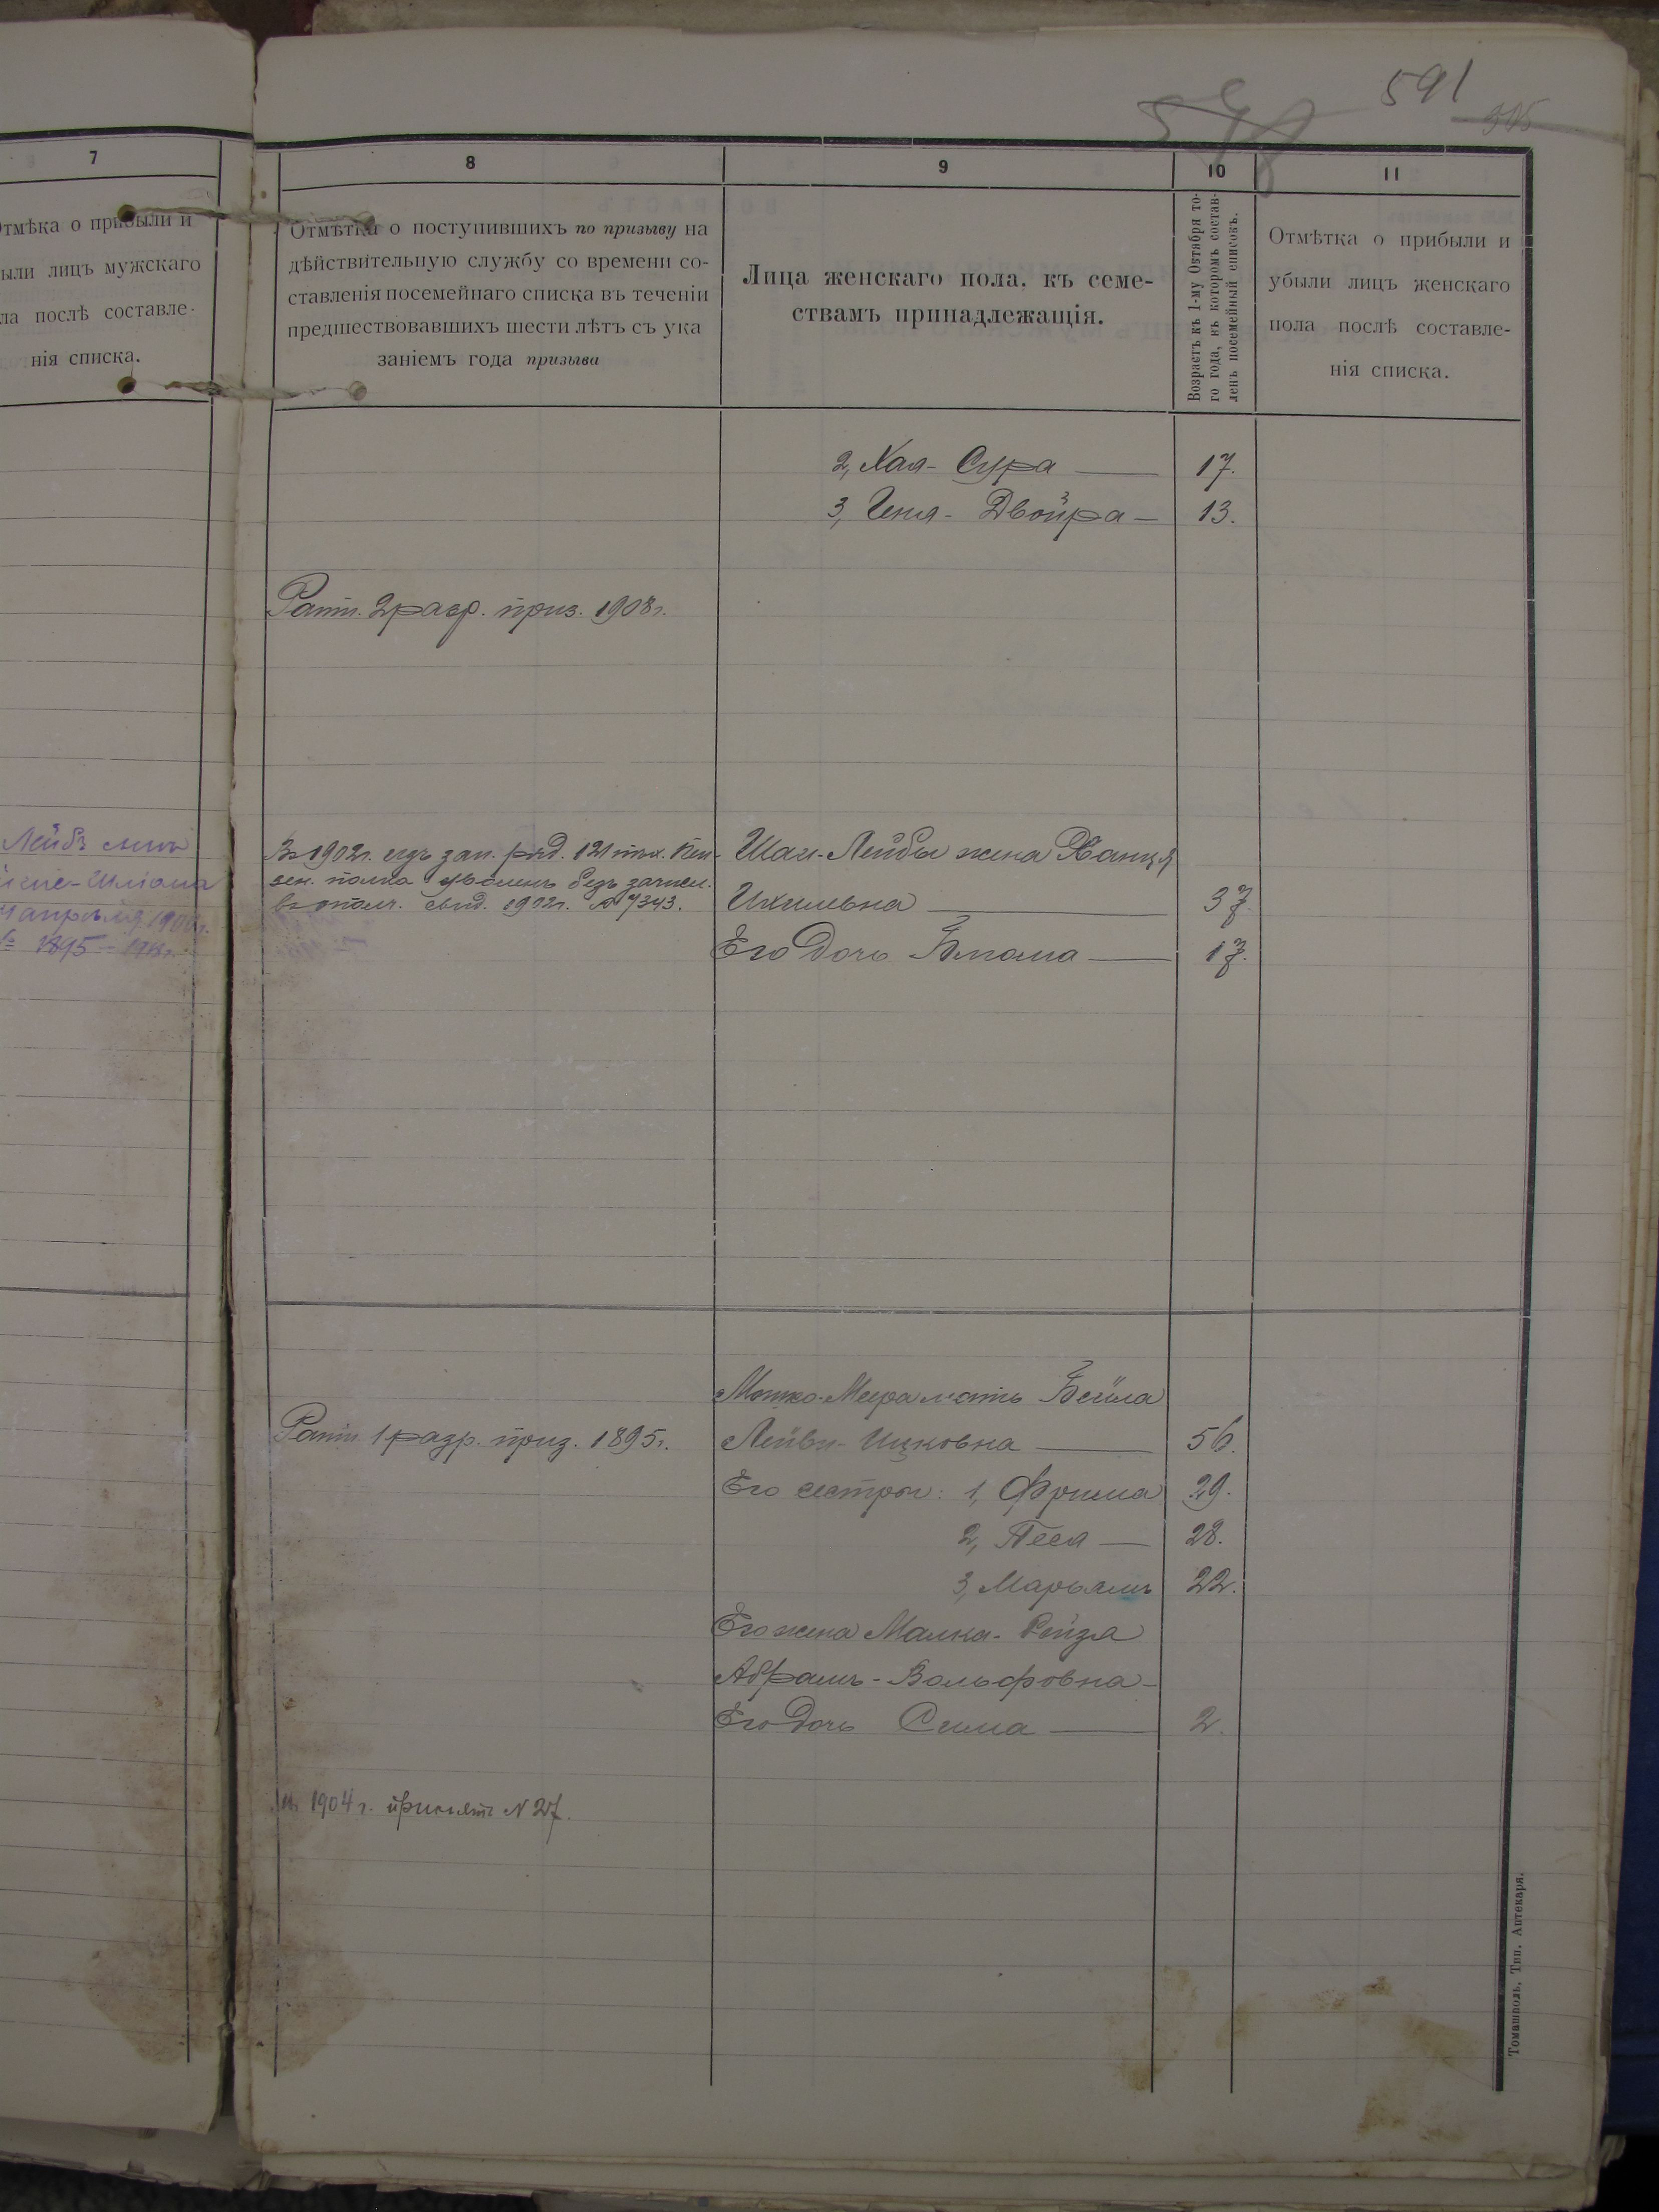 591
7
8
9
10
11
Отмѣка о прибыли и
были лицъ мужскаго
ла послѣ составле-
нія списка.
Отмѣтка о поступившихъ по призыву на
дѣйствительную службу со времени со-
ставленія посемейнаго списка въ теченіи
предшествовавшихъ шести лѣтъ съ ука
заніемъ года призыва
Лица женскаго пола, къ семе-
ствамъ принадлежащія.
Возрастъ къ 1-му Октября то-
го года, въ которомъ состав-
ленъ посемейный списокъ.
Отмѣтка о прибыли и
убыли лицъ женскаго
пола послѣ составле-
нія списка.
2, Хая-Сура — 17.
3, Геня-Двойра — 13.
Ратн. 2 разр. приз. 1908 г.
Лейбъ сынъ
апрѣля
1895
Въ 1902 г. зап. ряд. 121 пѣх. Пен-
зен. полка уволенъ безъ зачисл.
въ ополч. свид. 1902 г. № 7343.
Шая-Лейбы жена Ханця
Ихильва — 37.
Его дочь — 17.
Мошко-Меера мать Бейла
Лейви-Ицковна — 56.
Ратн. 1 разр. приз. 1895 г.
Его сестры: 1, Фрима 29.
2, Песя — 28.
3, Марьямъ 22.
Его жена Малка-Рейзя
Абрамъ-Вольфовна —
Его дочь Сима — 2.
1904 г. принятъ № 27.
Томашполь. Тип. Аптекаря.